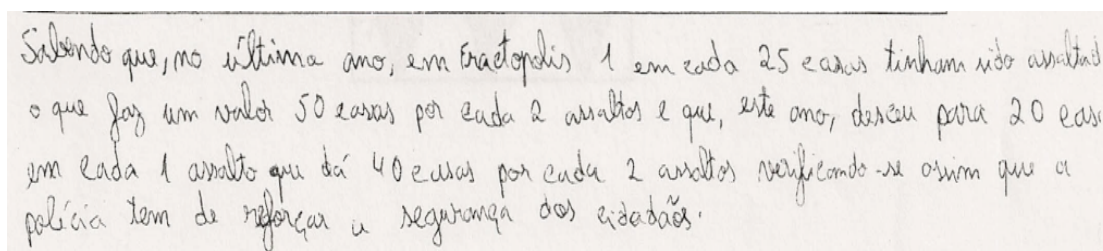 Sabendo que, no última ano, em Fractopolis 1 em cada 25 casas tinham sido assaltad
o que faz um valor 50 casas por cada 2 assaltos e que, este ano, desceu para 20 cas
em cada 1 assalto que dá 40 casas por cada 2 assaltos verificando-se assim que a
polícia tem de reforçar a segurança dos cidadãos.